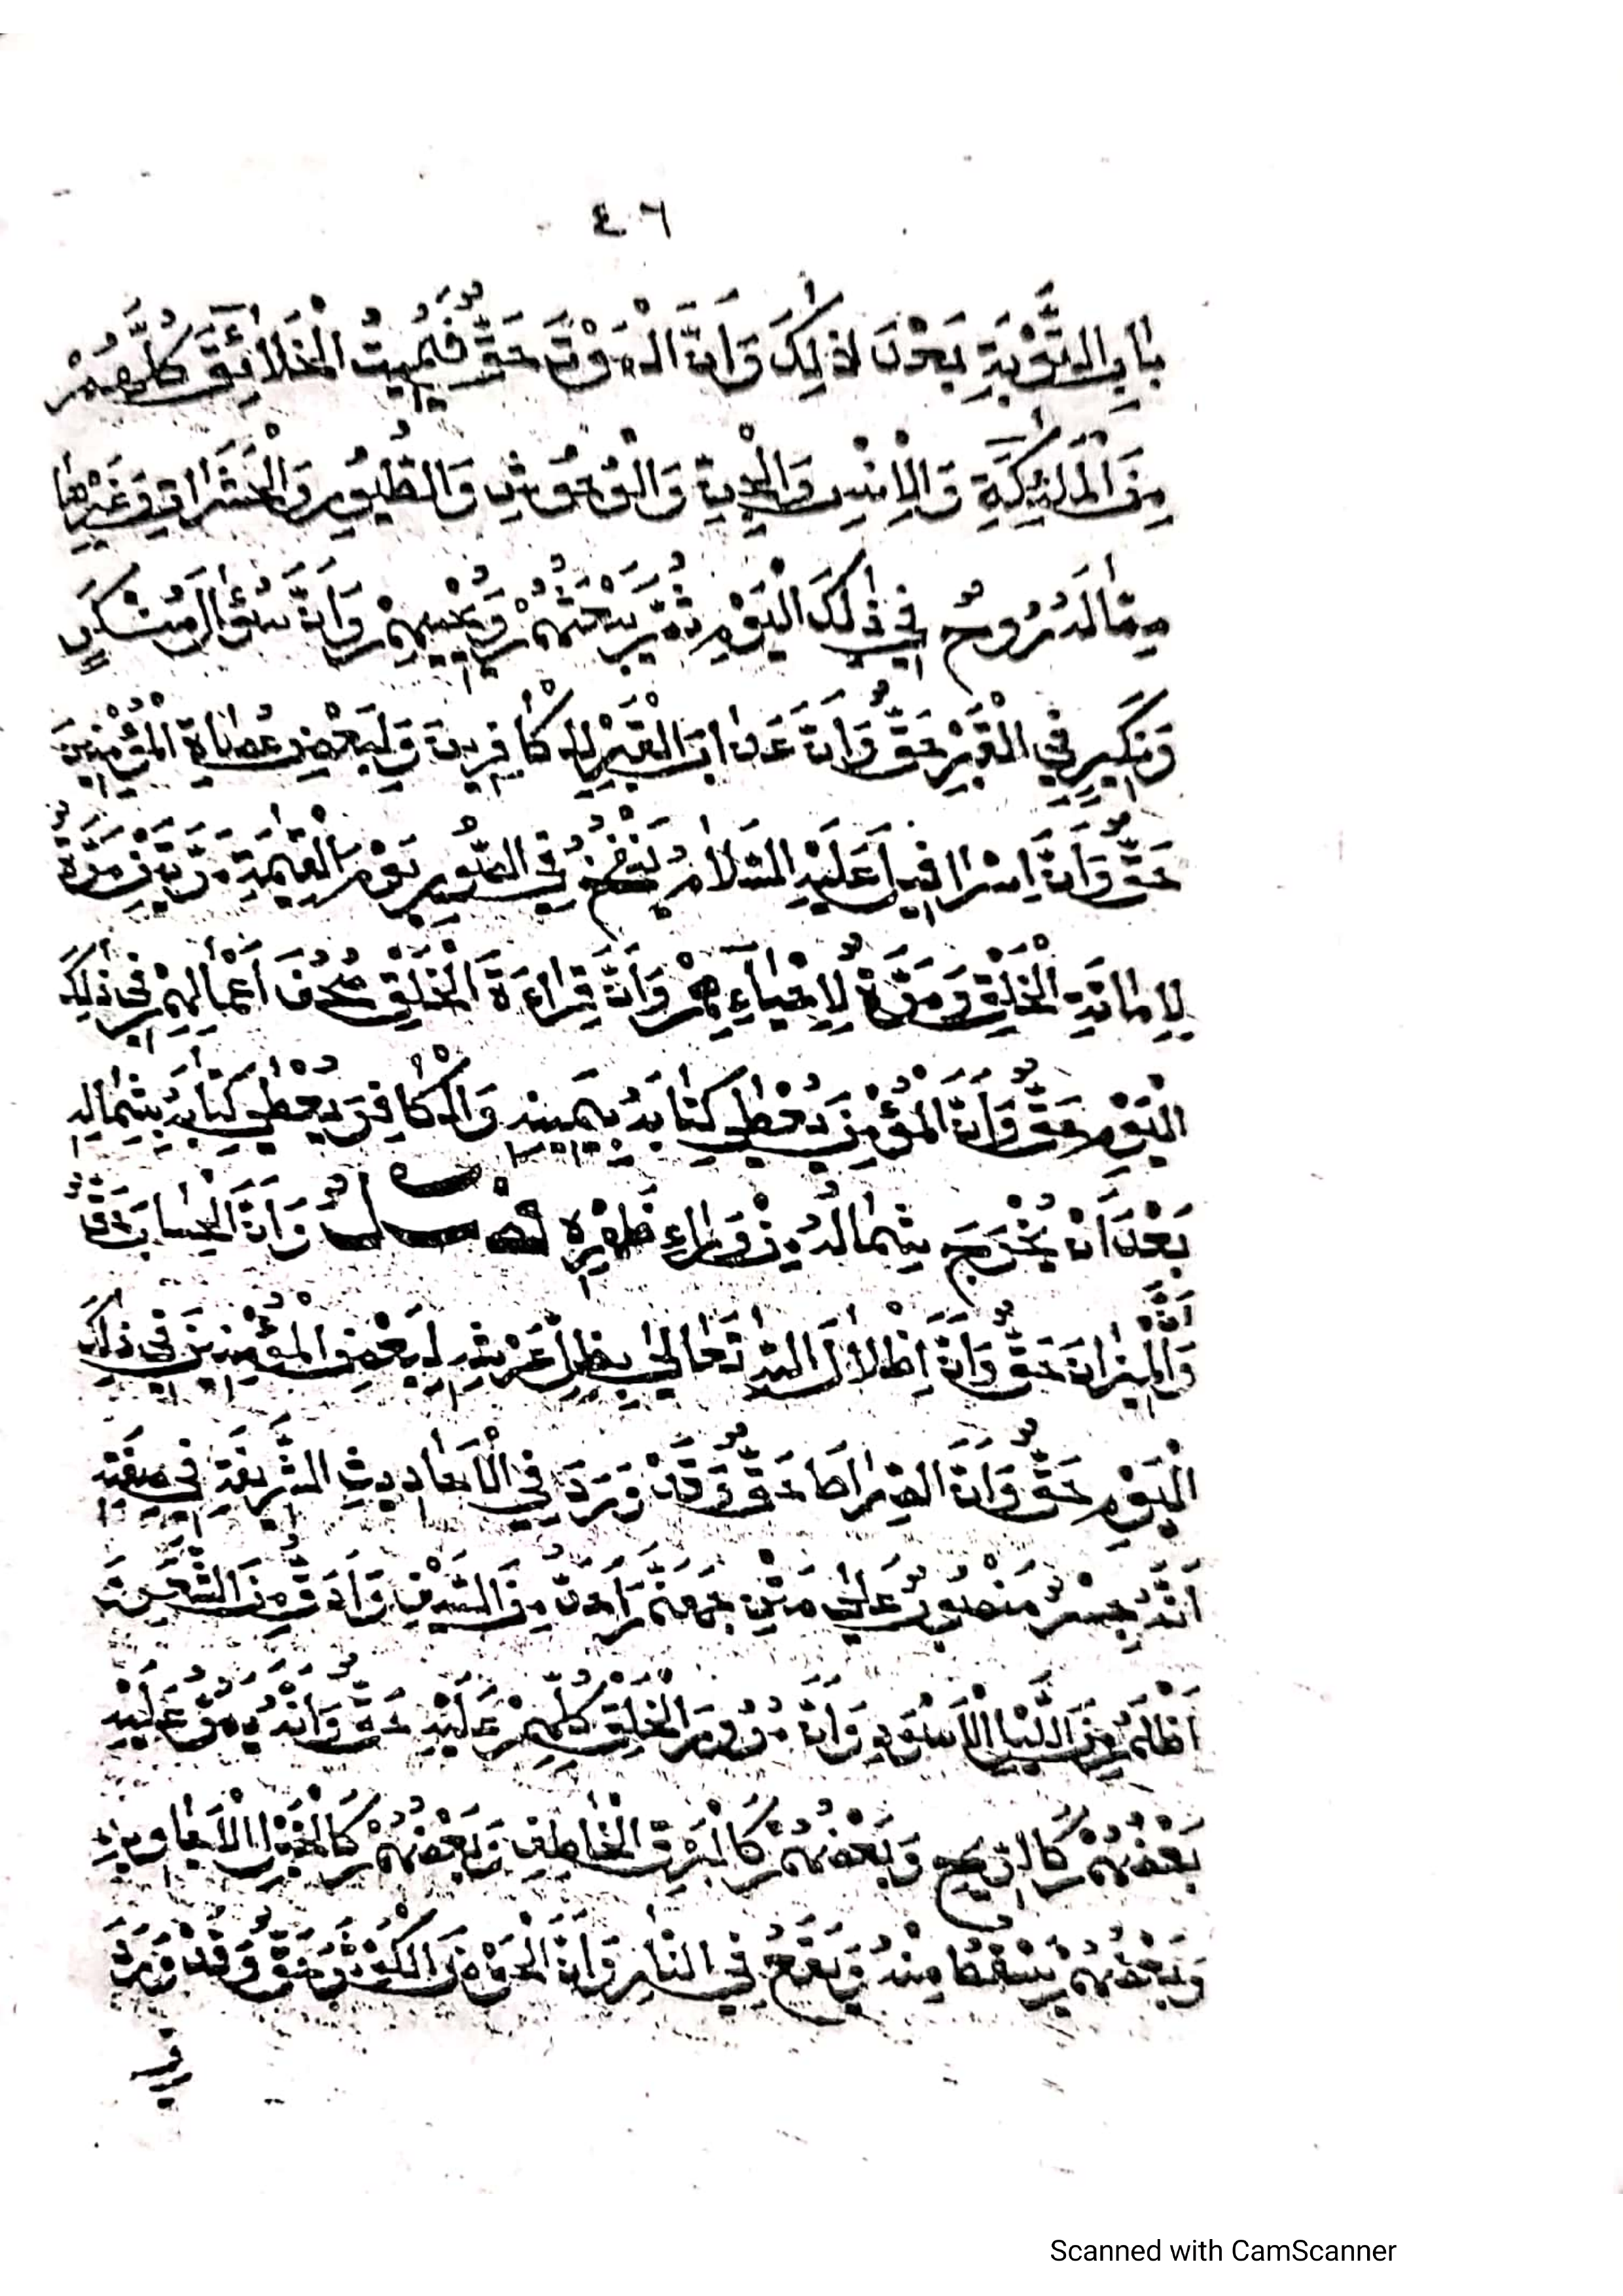 ٤٦
بَابِ التَّوْبَةِ بَعْدَ ذٰلِكَ وَاَنَّ الْمَوْتَ حَقٌّ فَيُمِيتُ الْخَلَائِقَ كُلَّهُمْ
مِنَ الْمَلٰئِكَةِ وَالْاِنْسِ وَالْجِنِّ وَالْوُحُوشِ وَالطُّيُورِ وَالْحَشَرَاتِ وَغَيْرِهَا
مِمَّا لَهُ رُوحٌ فِي ذٰلِكَ الْيَوْمِ ثُمَّ يَبْعَثُهُمْ وَيُحْيِيهِمْ وَاَنَّ سُؤَالَ مُنْكَرٍ
وَنَكِيرٍ فِي الْقَبْرِ حَقٌّ وَاَنَّ عَذَابَ الْقَبْرِ لِلْكَافِرِينَ وَلِبَعْضِ عُصَاةِ الْمُؤْمِنِينَ
حَقٌّ وَاَنَّ اِسْرَافِيلَ عَلَيْهِ السَّلَامُ يَنْفُخُ فِي الصُّورِ يَوْمَ الْقِيٰمَةِ مَرَّتَيْنِ مَرَّةً
لِاِمَاتَةِ الْخَلْقِ وَمَرَّةً لِاِحْيَآءِهِمْ وَاَنَّ قِرَاءَةَ الْخَلْقِ صُحُفَ اَعْمَالِهِمْ فِي ذٰلِكَ
الْيَوْمِ حَقٌّ وَاَنَّ الْمُؤْمِنَ يُعْطٰى كِتَابَهُ بِيَمِينِهِ وَالْكَافِرَ يُعْطٰى كِتَابَهُ بِشِمَالِهِ
بَعْدَ اَنْ يُخْرَجَ شِمَالُهُ مِنْ وَرَاءِ ظَهْرِهِ وَاَنَّ الْحِسَابَ حَقٌّ
وَاَنَّ الْمِيزَانَ حَقٌّ وَاَنَّ اِظْلَالَ اللّٰهِ تَعَالٰى بِظِلِّ عَرْشِهِ لِبَعْضِ الْمُؤْمِنِينَ فِي ذٰلِكَ
الْيَوْمِ حَقٌّ وَاَنَّ الصِّرَاطَ حَقٌّ وَقَدْ وَرَدَ فِي الْاَحَادِيثِ الشَّرِيفَةِ فِي صِفَتِهِ
اَنَّهُ جِسْرٌ مَنْصُوبٌ عَلٰى مَتْنِ جَهَنَّمَ اَحَدُّ مِنَ السَّيْفِ وَاَدَقُّ مِنَ الشَّعْرَةِ
اَظْلَمُ مِنَ اللَّيْلِ الْاَسْوَدِ وَاَنَّ مُرُورَ الْخَلْقِ كُلِّهِمْ عَلَيْهِ حَقٌّ وَاَنَّهُ يَمُرُّ عَلَيْهِ
بَعْضُهُمْ كَالرِّيحِ وَبَعْضُهُمْ كَالْبَرْقِ الْخَاطِفِ وَبَعْضُهُمْ كَالْخَيْلِ الْاَجَاوِيدِ
وَبَعْضُهُمْ يَسْقُطُ مِنْهُ وَيَقَعُ فِي النَّارِ وَاَنَّ الْحَوْضَ الْكَوْثَرَ حَقٌّ وَقَدْ وَرَدَ
فِي
Scanned with CamScanner